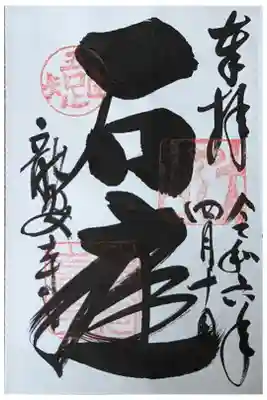 奉拝
令和六年
四月十日
石庭
龍安寺